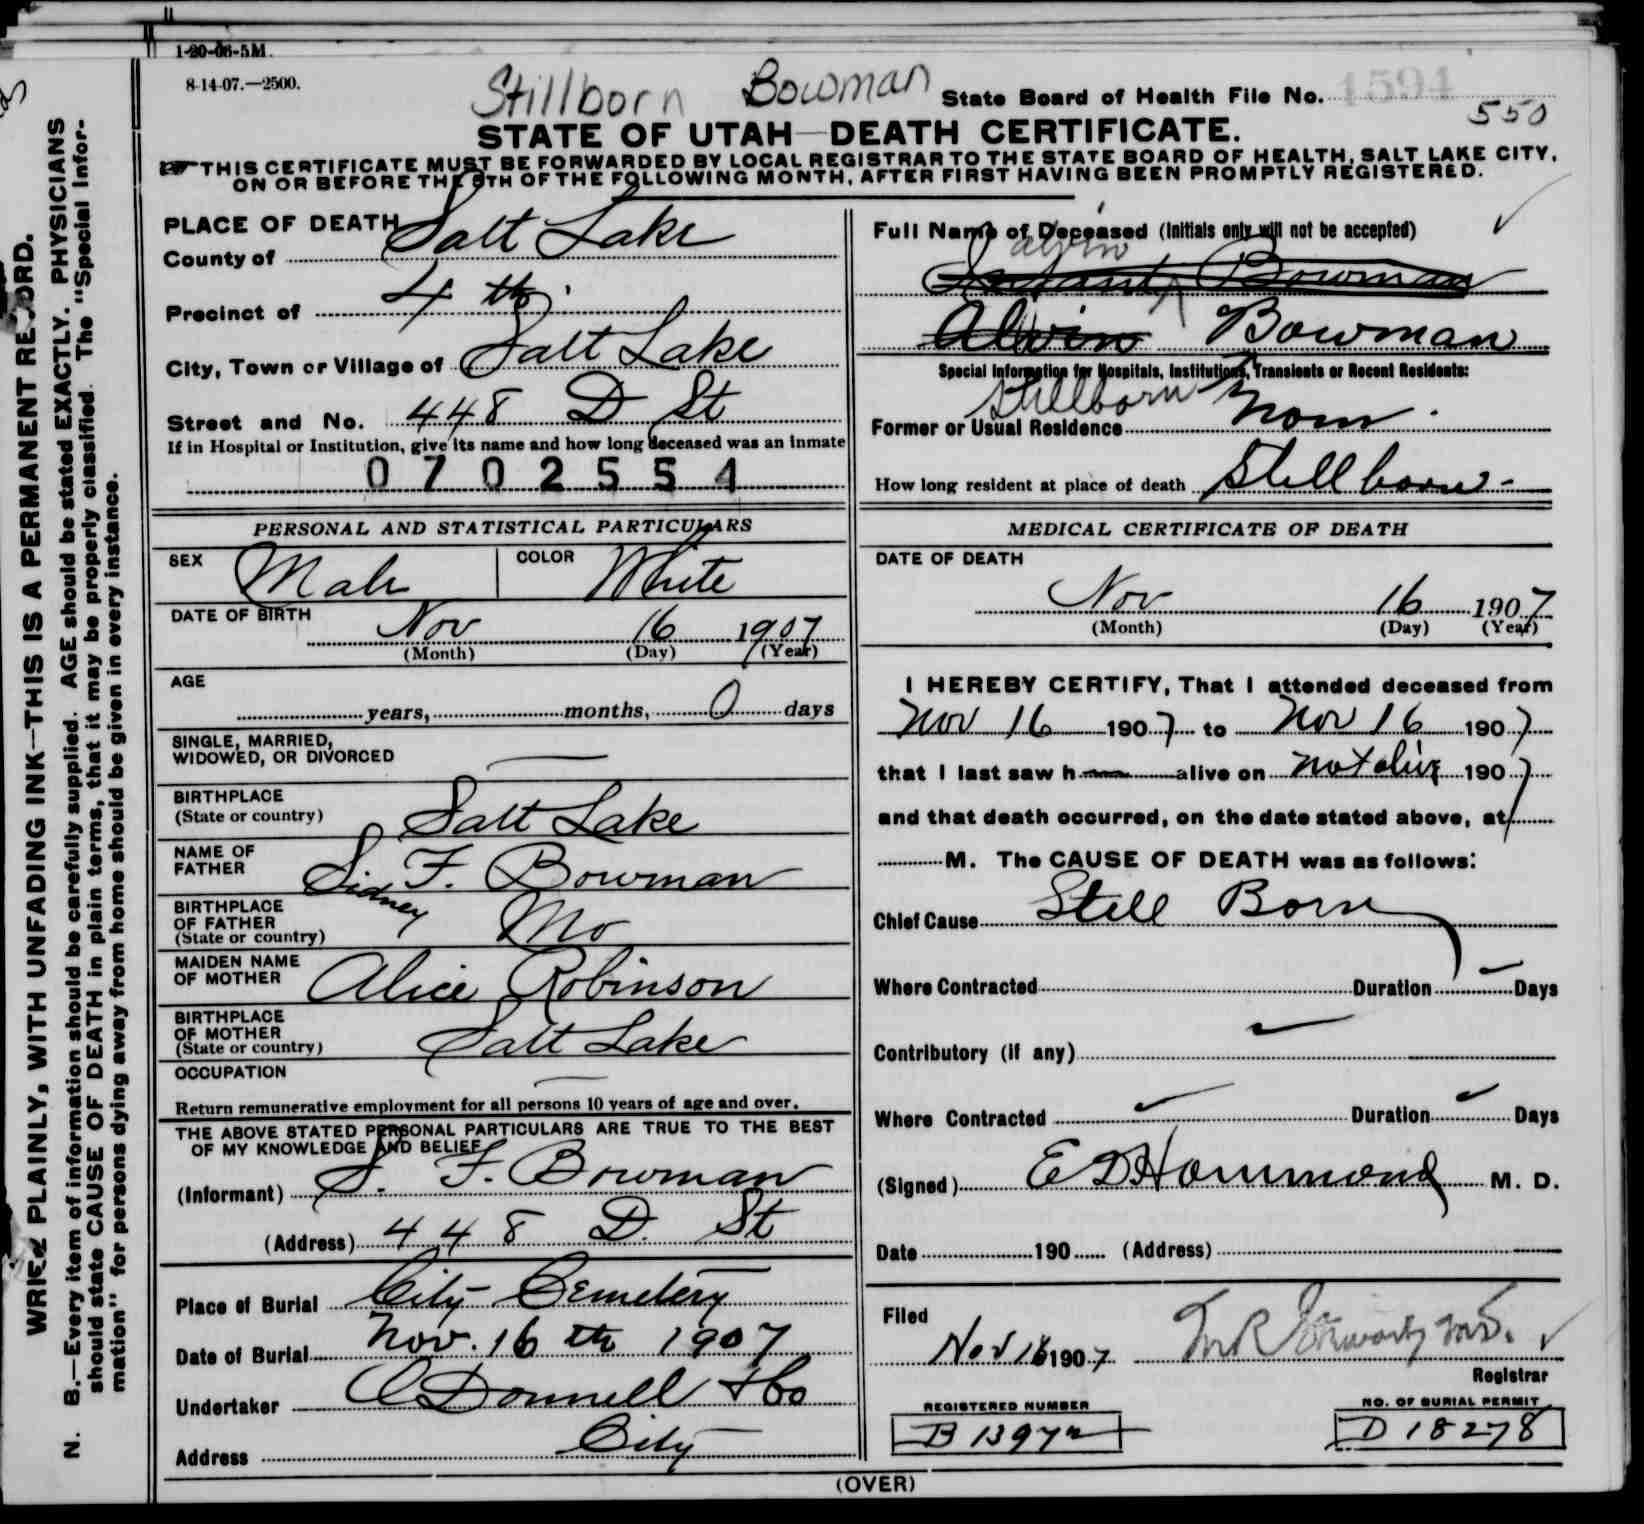 1-20-06-5M.
8-14-07.—2500.
Stillborn Bowman
State Board of Health File No. 1594
550
STATE OF UTAH—DEATH CERTIFICATE.
THIS CERTIFICATE MUST BE FORWARDED BY LOCAL REGISTRAR TO THE STATE BOARD OF HEALTH, SALT LAKE CITY,
ON OR BEFORE THE 5TH OF THE FOLLOWING MONTH, AFTER FIRST HAVING BEEN PROMPTLY REGISTERED.
PLACE OF DEATH
County of Salt Lake
Precinct of 4th
City, Town or Village of Salt Lake
Street and No. 448 D St
If in Hospital or Institution, give its name and how long deceased was an inmate
0702554
Full Name of Deceased (Initials only will not be accepted)
Infant Bowman
Alvin Bowman
Special Information for Hospitals, Institutions, Transients or Recent Residents:
Stillborn
Former or Usual Residence None
How long resident at place of death Stillborn-
PERSONAL AND STATISTICAL PARTICULARS
SEX Male COLOR White
DATE OF BIRTH
Nov 16 1907
(Month) (Day) (Year)
AGE
years, months, 0 days
SINGLE, MARRIED,
WIDOWED, OR DIVORCED
BIRTHPLACE
(State or country) Salt Lake
NAME OF
FATHER Sidney F. Bowman
BIRTHPLACE
OF FATHER
(State or country) Mo
MAIDEN NAME
OF MOTHER Alice Robinson
BIRTHPLACE
OF MOTHER
(State or country) Salt Lake
OCCUPATION
Return remunerative employment for all persons 10 years of age and over.
THE ABOVE STATED PERSONAL PARTICULARS ARE TRUE TO THE BEST
OF MY KNOWLEDGE AND BELIEF
(Informant) S. F. Bowman
(Address) 448 D. St
Place of Burial City Cemetery
Date of Burial Nov. 16th 1907
Undertaker O'Donnell & Co
Address City
MEDICAL CERTIFICATE OF DEATH
DATE OF DEATH
Nov 16 1907
(Month) (Day) (Year)
I HEREBY CERTIFY, That I attended deceased from
Nov 16 1907 to Nov 16 1907
that I last saw h alive on not alive 1907
and that death occurred, on the date stated above, at
M. The CAUSE OF DEATH was as follows:
Chief Cause Still Born
Where Contracted Duration Days
Contributory (if any)
Where Contracted Duration Days
(Signed) E D Hammond M. D.
Date 190 (Address)
Filed
Nov 16 1907
Registrar
REGISTERED NUMBER
B 13972
NO. OF BURIAL PERMIT
D 18278
(OVER)
WRITE PLAINLY, WITH UNFADING INK—THIS IS A PERMANENT RECORD.
N. B.—Every item of information should be carefully supplied. AGE should be stated EXACTLY. PHYSICIANS
should state CAUSE OF DEATH in plain terms, that it may be properly classified. The "Special Infor-
mation" for persons dying away from home should be given in every instance.